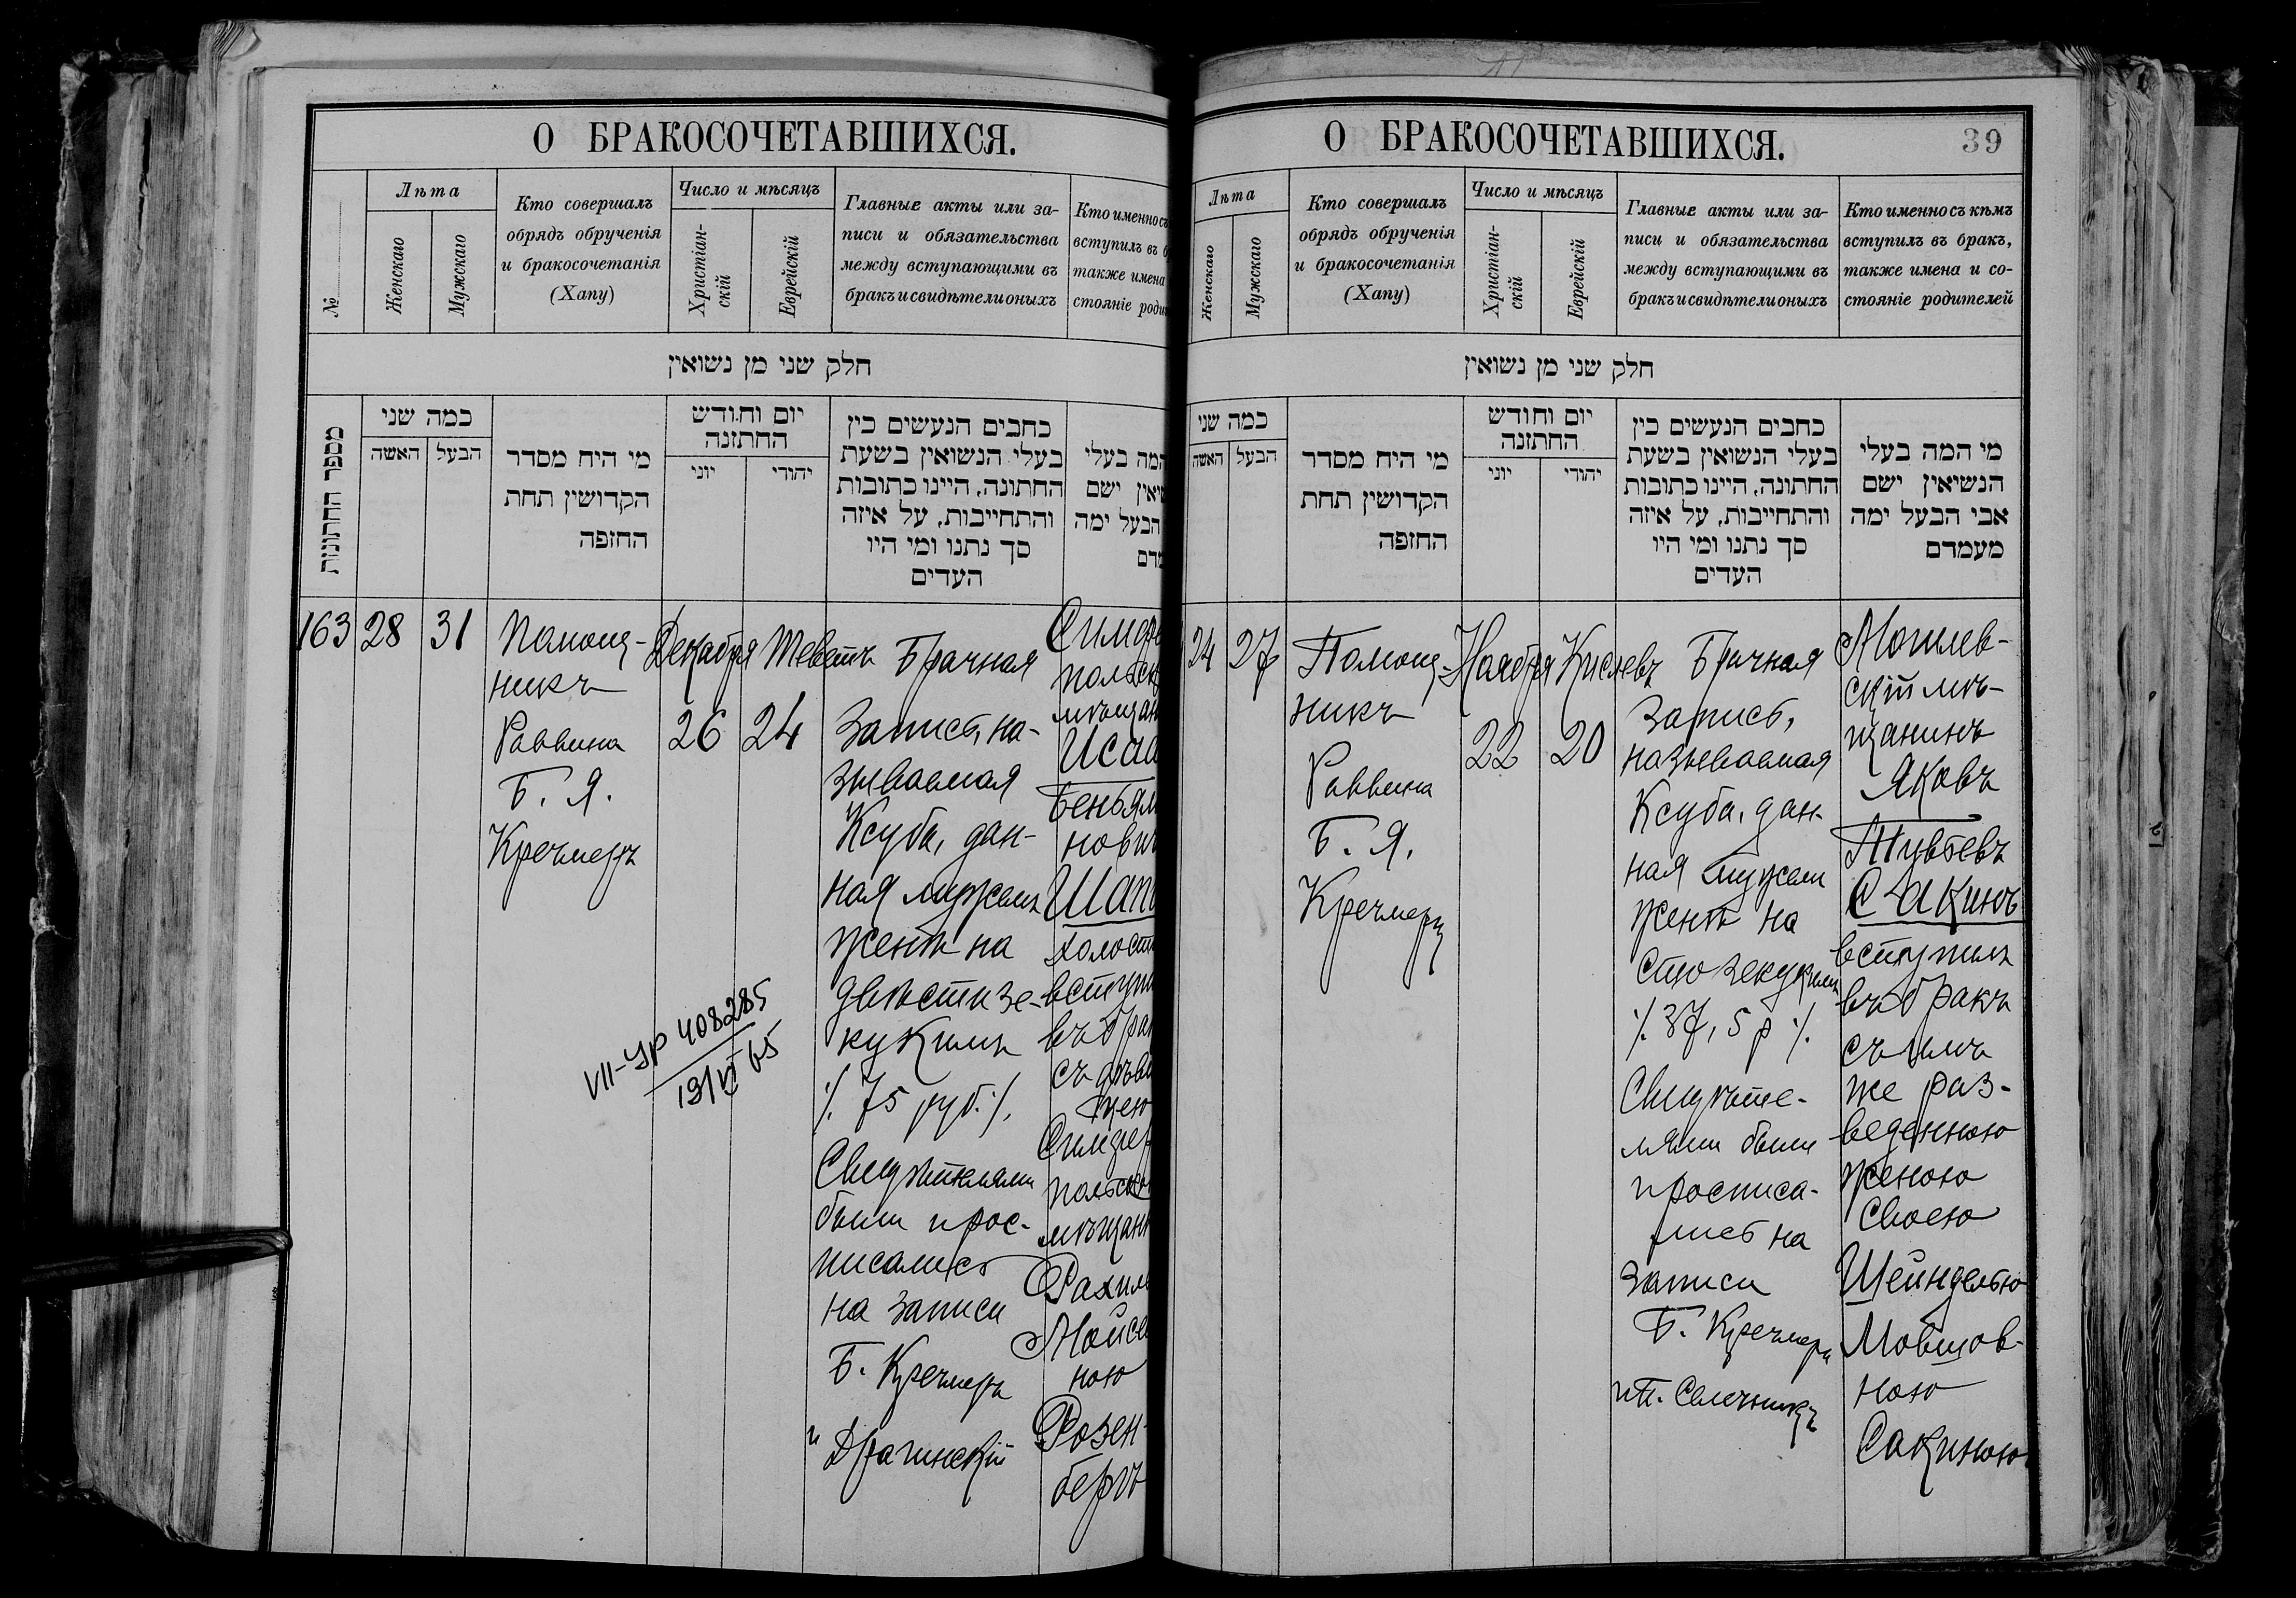 О БРАКОСОЧЕТАВШИХСЯ.
№
Лѣта
Женскаго
Мужскаго
Кто совершалъ
обрядъ обрученія
и бракосочетанія
(Хапу)
Число и мѣсяцъ
Христіан-
скій
Еврейскій
Главные акты или за-
писи и обязательства
между вступающими въ
бракъ и свидѣтели оныхъ
Кто именно съ
вступилъ въ
также имена
стояніе
חלק שני מן נשואין
מספר החתונות
כמה שני
האשה
הבעל
מי היח מסדר
הקדושין תחת
החופה
יום וחודש
החתונה
יוני
יהודי
כתבים הנעשים בין
בעלי הנשואין בשעת
החתונה, היינו כתובות
והתחייבות, על איזה
סך נתנו ומי היו
העדים
המה בעלי
ישם
הבעל ימה
163
28
31
Помощ-
никъ
Раввина
Б. Я.
Кречмеръ
Декабря
26
Теветъ
24
Брачная
Запись, на-
зываемая
Ксуба, дан-
ная мужемъ
женѣ на
двѣсти зе-
кукимъ
/. 75 руб. /.
Свидѣтелями
были и рос-
писались
на записи
Б. Кречмеръ
и Драгинскій
Симфе
польск
мѣщан
Исаа
Беньям
нович
Шап
холост
вступи
въ бра
съ дѣви
цею
Симфер
польско
мѣщанк
Рахиль
Мойсе
ною
Розен-
бергъ
VII-УР 408285
19/VI 65
О БРАКОСОЧЕТАВШИХСЯ.
39
Лѣта
Женскаго
Мужскаго
Кто совершалъ
обрядъ обрученія
и бракосочетанія
(Хапу)
Число и мѣсяцъ
Христіан-
скій
Еврейскій
Главные акты или за-
писи и обязательства
между вступающими въ
бракъ и свидѣтели оныхъ
Кто именно съ кѣмъ
вступилъ въ бракъ,
также имена и со-
стояніе родителей
חלק שני מן נשואין
כמה שני
האשה
הבעל
מי היח מסדר
הקדושין תחת
החופה
יום וחודש
החתונה
יוני
יהודי
כתבים הנעשים בין
בעלי הנשואין בשעת
החתונה, היינו כתובות
והתחייבות, על איזה
סך נתנו ומי היו
העדים
מי המה בעלי
הנשיאין ישם
אבי הבעל ימה
מעמדם
24
27
Помощ-
никъ
Раввина
Б. Я.
Кречмеръ
Ноября
22
Кислевъ
20
Брачная
Запись,
называемая
Ксуба, дан-
ная мужемъ
женѣ на
сто зекукимъ
/. 37,5 р /.
Свидѣте-
лями были
и росписа-
лись на
записи
Б. Кречмеръ
Могилев-
скій мѣ-
щанинъ
Яковъ
Тувьевъ
Сакинъ
вступилъ
въ бракъ
съ
же раз-
веденною
женою
своею
Шейнделью
Мовшов-
ною
Сакиною